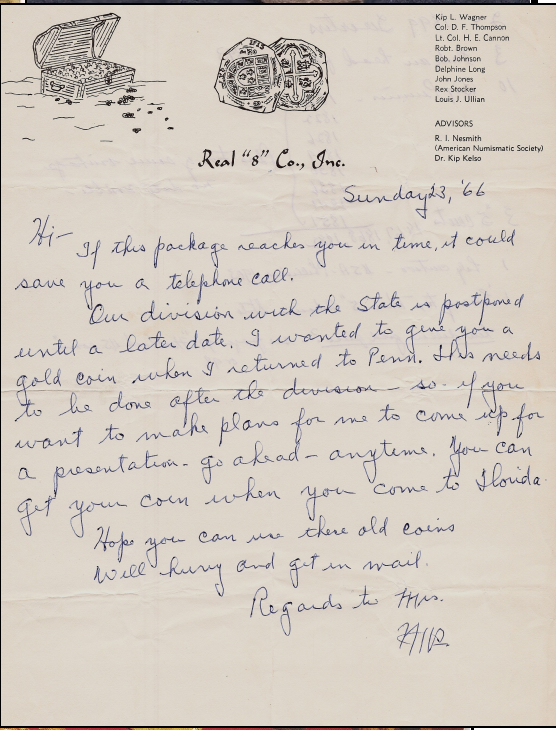 Kip L. Wagner
Col. D. F. Thompson
Lt. Col. H. E. Cannon
Robt. Brown
Bob. Johnson
Delphine Long
John Jones
Rex Stocker
Louis J. Ullian
ADVISORS
R. I. Nesmith
(American Numismatic Society)
Dr. Kip Kelso
Real "8" Co., Inc.
Sunday 23, '66
Hi—
If this package reaches you in time, it could
save you a telephone call.
Our division with the State is postponed
until a later date. I wanted to give you a
gold coin when I returned to Penn. This needs
to be done after the division — so if you
want to make plans for me to come up for
a presentation - go ahead - anytime. You can
get your coin when you come to Florida.
Hope you can use these old coins
Will hurry and get in mail.
Regards to Mrs.
Kip.